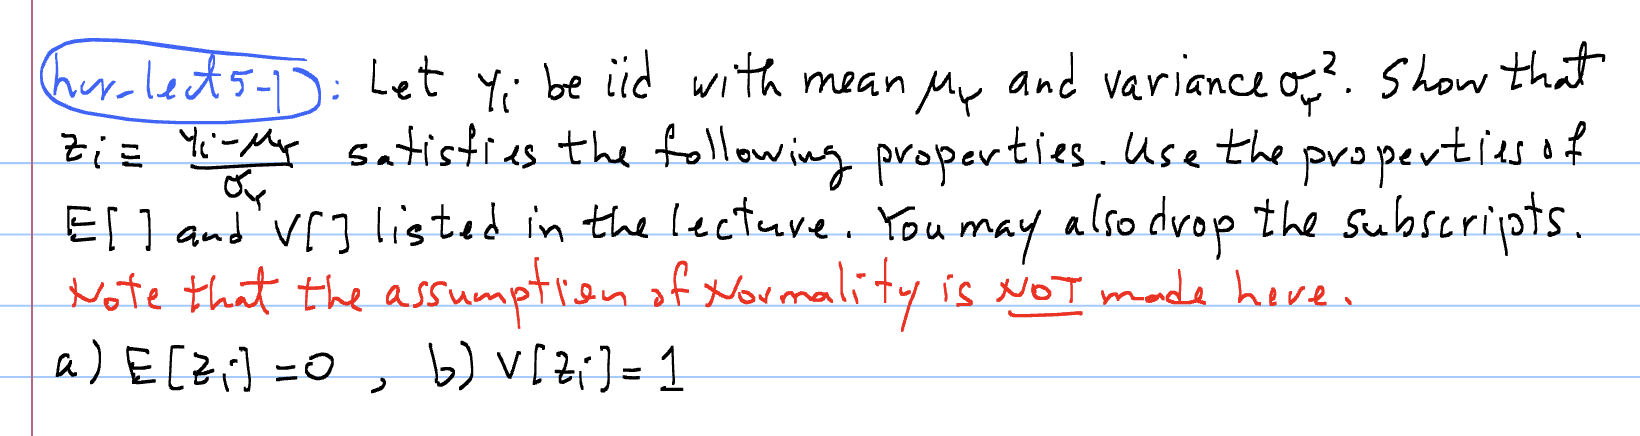 hw-lect5-1): Let yᵢ be iid with mean μ_Y and variance σ_Y². Show that
zᵢ ≡ (yᵢ-μ_Y)/σ_Y satisfies the following properties. Use the properties of
E[ ] and V[ ] listed in the lecture. You may also drop the subscripts.
Note that the assumption of Normality is NOT made here.
a) E[zᵢ] = 0 , b) V[zᵢ] = 1